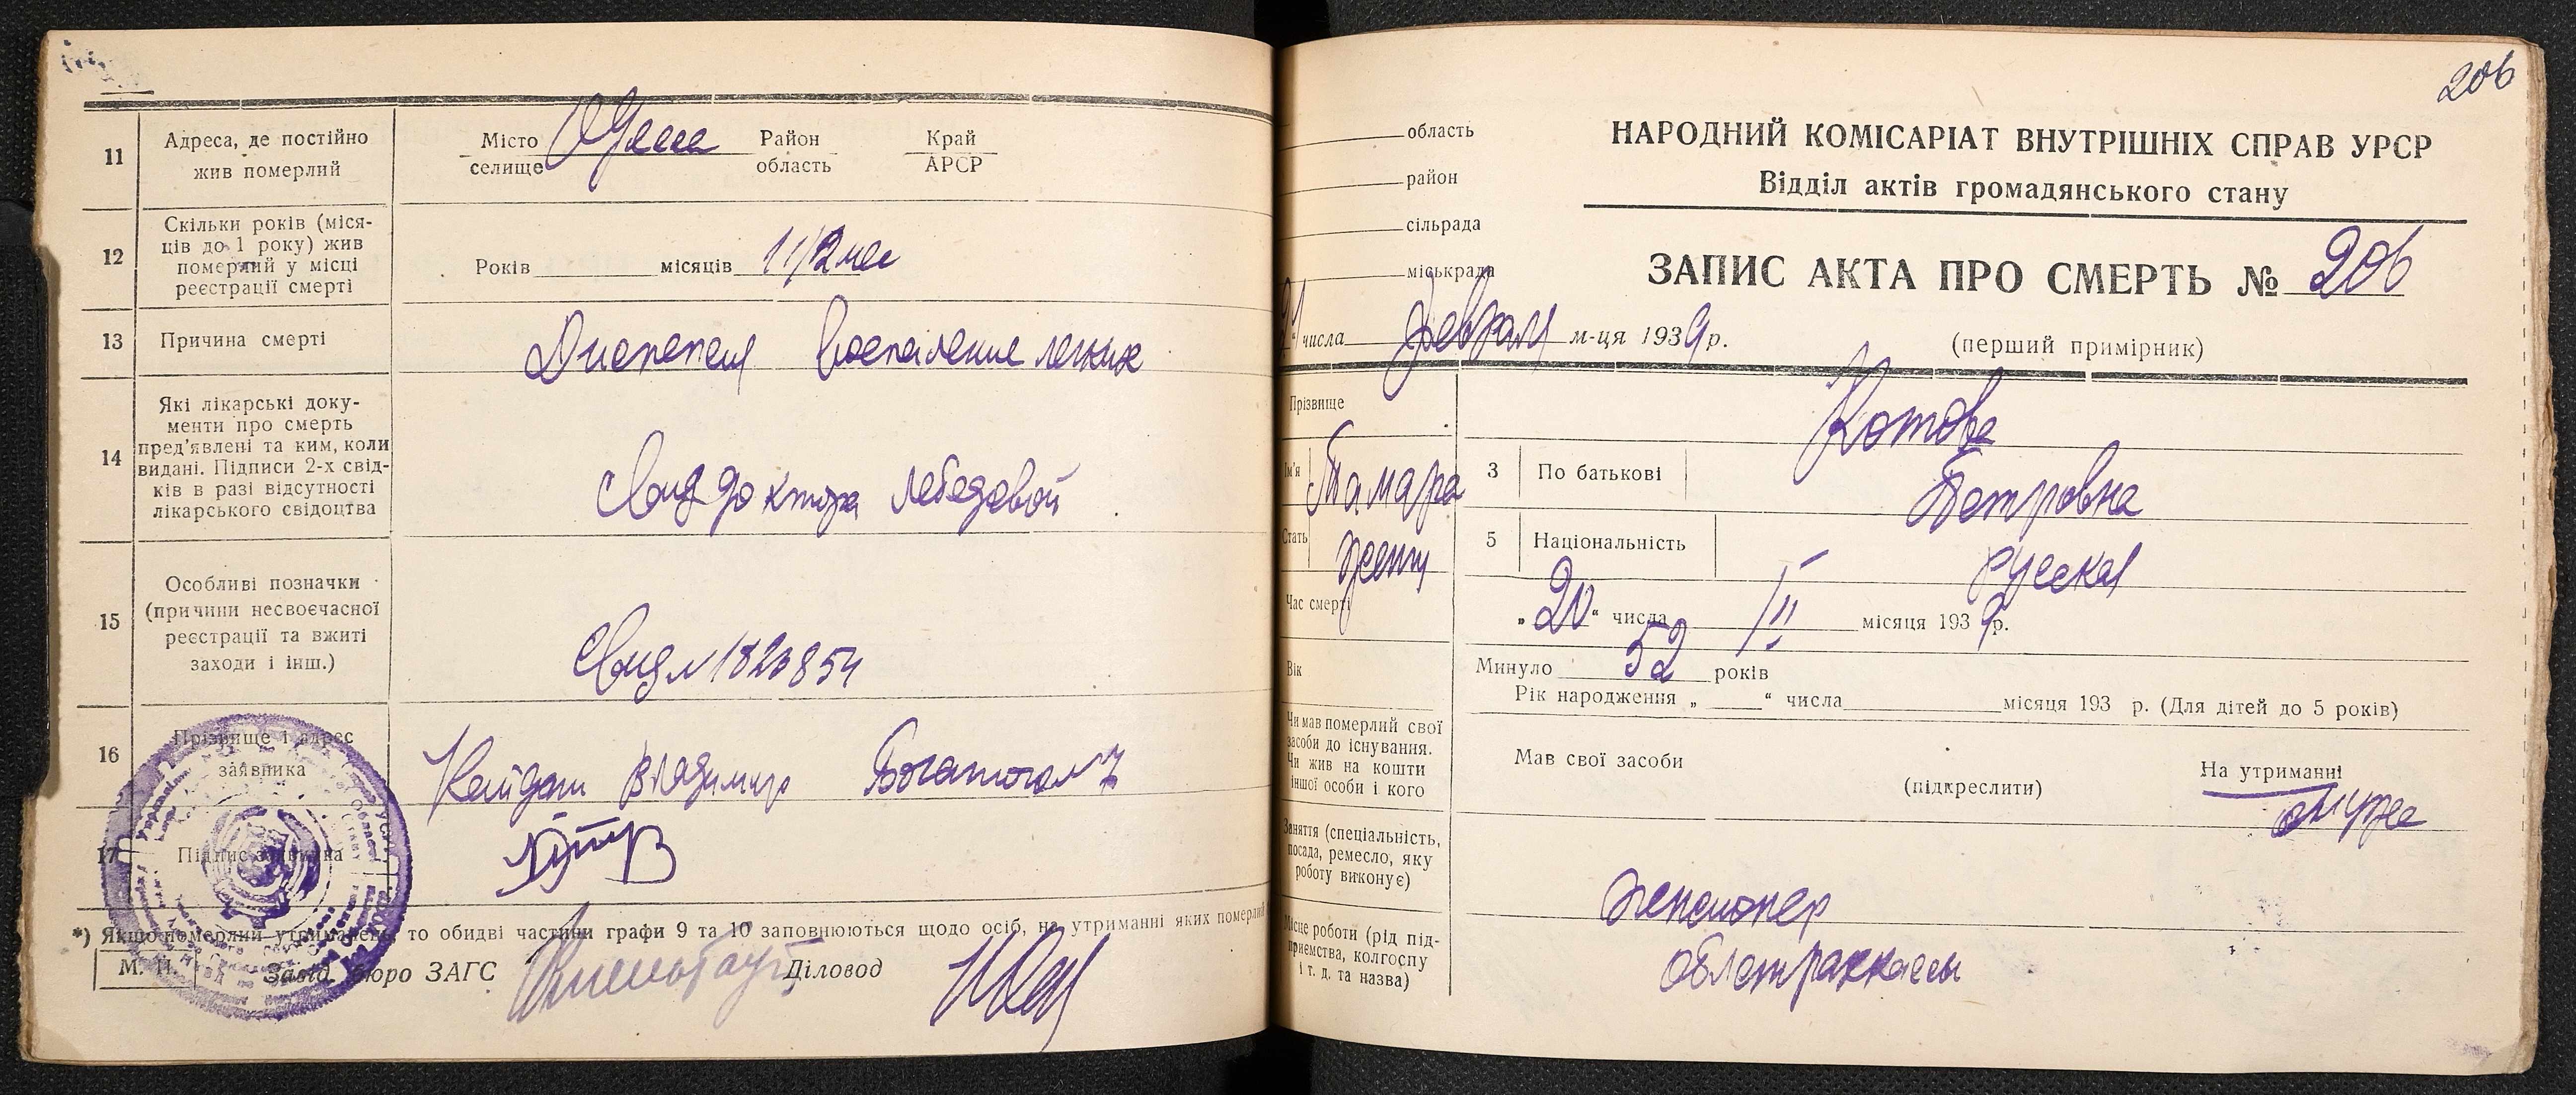 11
Адреса, де постійно
жив померлий
Місто
селище
Одесса
Район
область
Край
АРСР
12
Скільки років (міся-
ців до 1 року) жив
померлий у місці
реєстрації смерті
Років
місяців
1 1/2 мес
13
Причина смерті
Воспаление легких
14
Які лікарські доку-
менти про смерть
пред'явлені та ким, коли
видані. Підписи 2-х свід-
ків в разі відсутності
лікарського свідоцтва
Свид доктора Лебедовой
15
Особливі позначки
(причини несвоєчасної
реєстрації та вжиті
заходи і інш.)
Свид №1823854
16
Прізвище і адрес
заявника
Владимир
17
Підпис заявника
*) Якщо померлий утриманець, то обидві частини графи 9 та 10 заповнюються щодо осіб, на утриманні яких померлий
М. П.
Завід. бюро ЗАГС
Діловод
206
область
район
сільрада
міськрада
НАРОДНИЙ КОМІСАРІАТ ВНУТРІШНІХ СПРАВ УРСР
Відділ актів громадянського стану
ЗАПИС АКТА ПРО СМЕРТЬ № 206
21 числа февраля м-ця 1939 р.
(перший примірник)
Прізвище
Котова
Ім'я
Тамара
3
По батькові
Петровна
Стать
женщ
5
Національність
русская
Час смерті
„20“ числа II місяця 1939 р.
Вік
Минуло 52 років
Рік народження „ “ числа місяця 193 р. (Для дітей до 5 років)
Чи мав померлий свої
засоби до існування.
Чи жив на кошти
іншої особи і кого
Мав свої засоби
(підкреслити)
На утриманні
мужа
Заняття (спеціальність,
посада, ремесло, яку
роботу виконує)
пенсионер
Місце роботи (рід під-
приємства, колгоспу
і т. д. та назва)
облстрахкассы